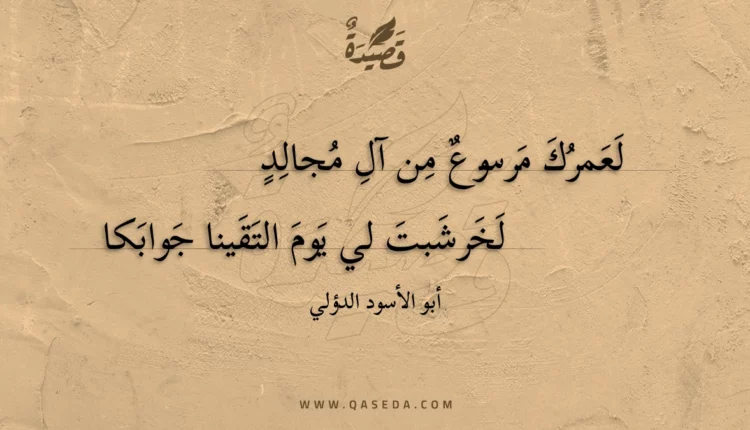 قَصِيدَةٌ
لَعَمرُكَ مَرسوعٌ مِن آلِ مُجالِدٍ
لَخَرشَبتَ لي يَومَ التَقَينا جَوابَكا
أبو الأسود الدؤلي
WWW.QASEDA.COM